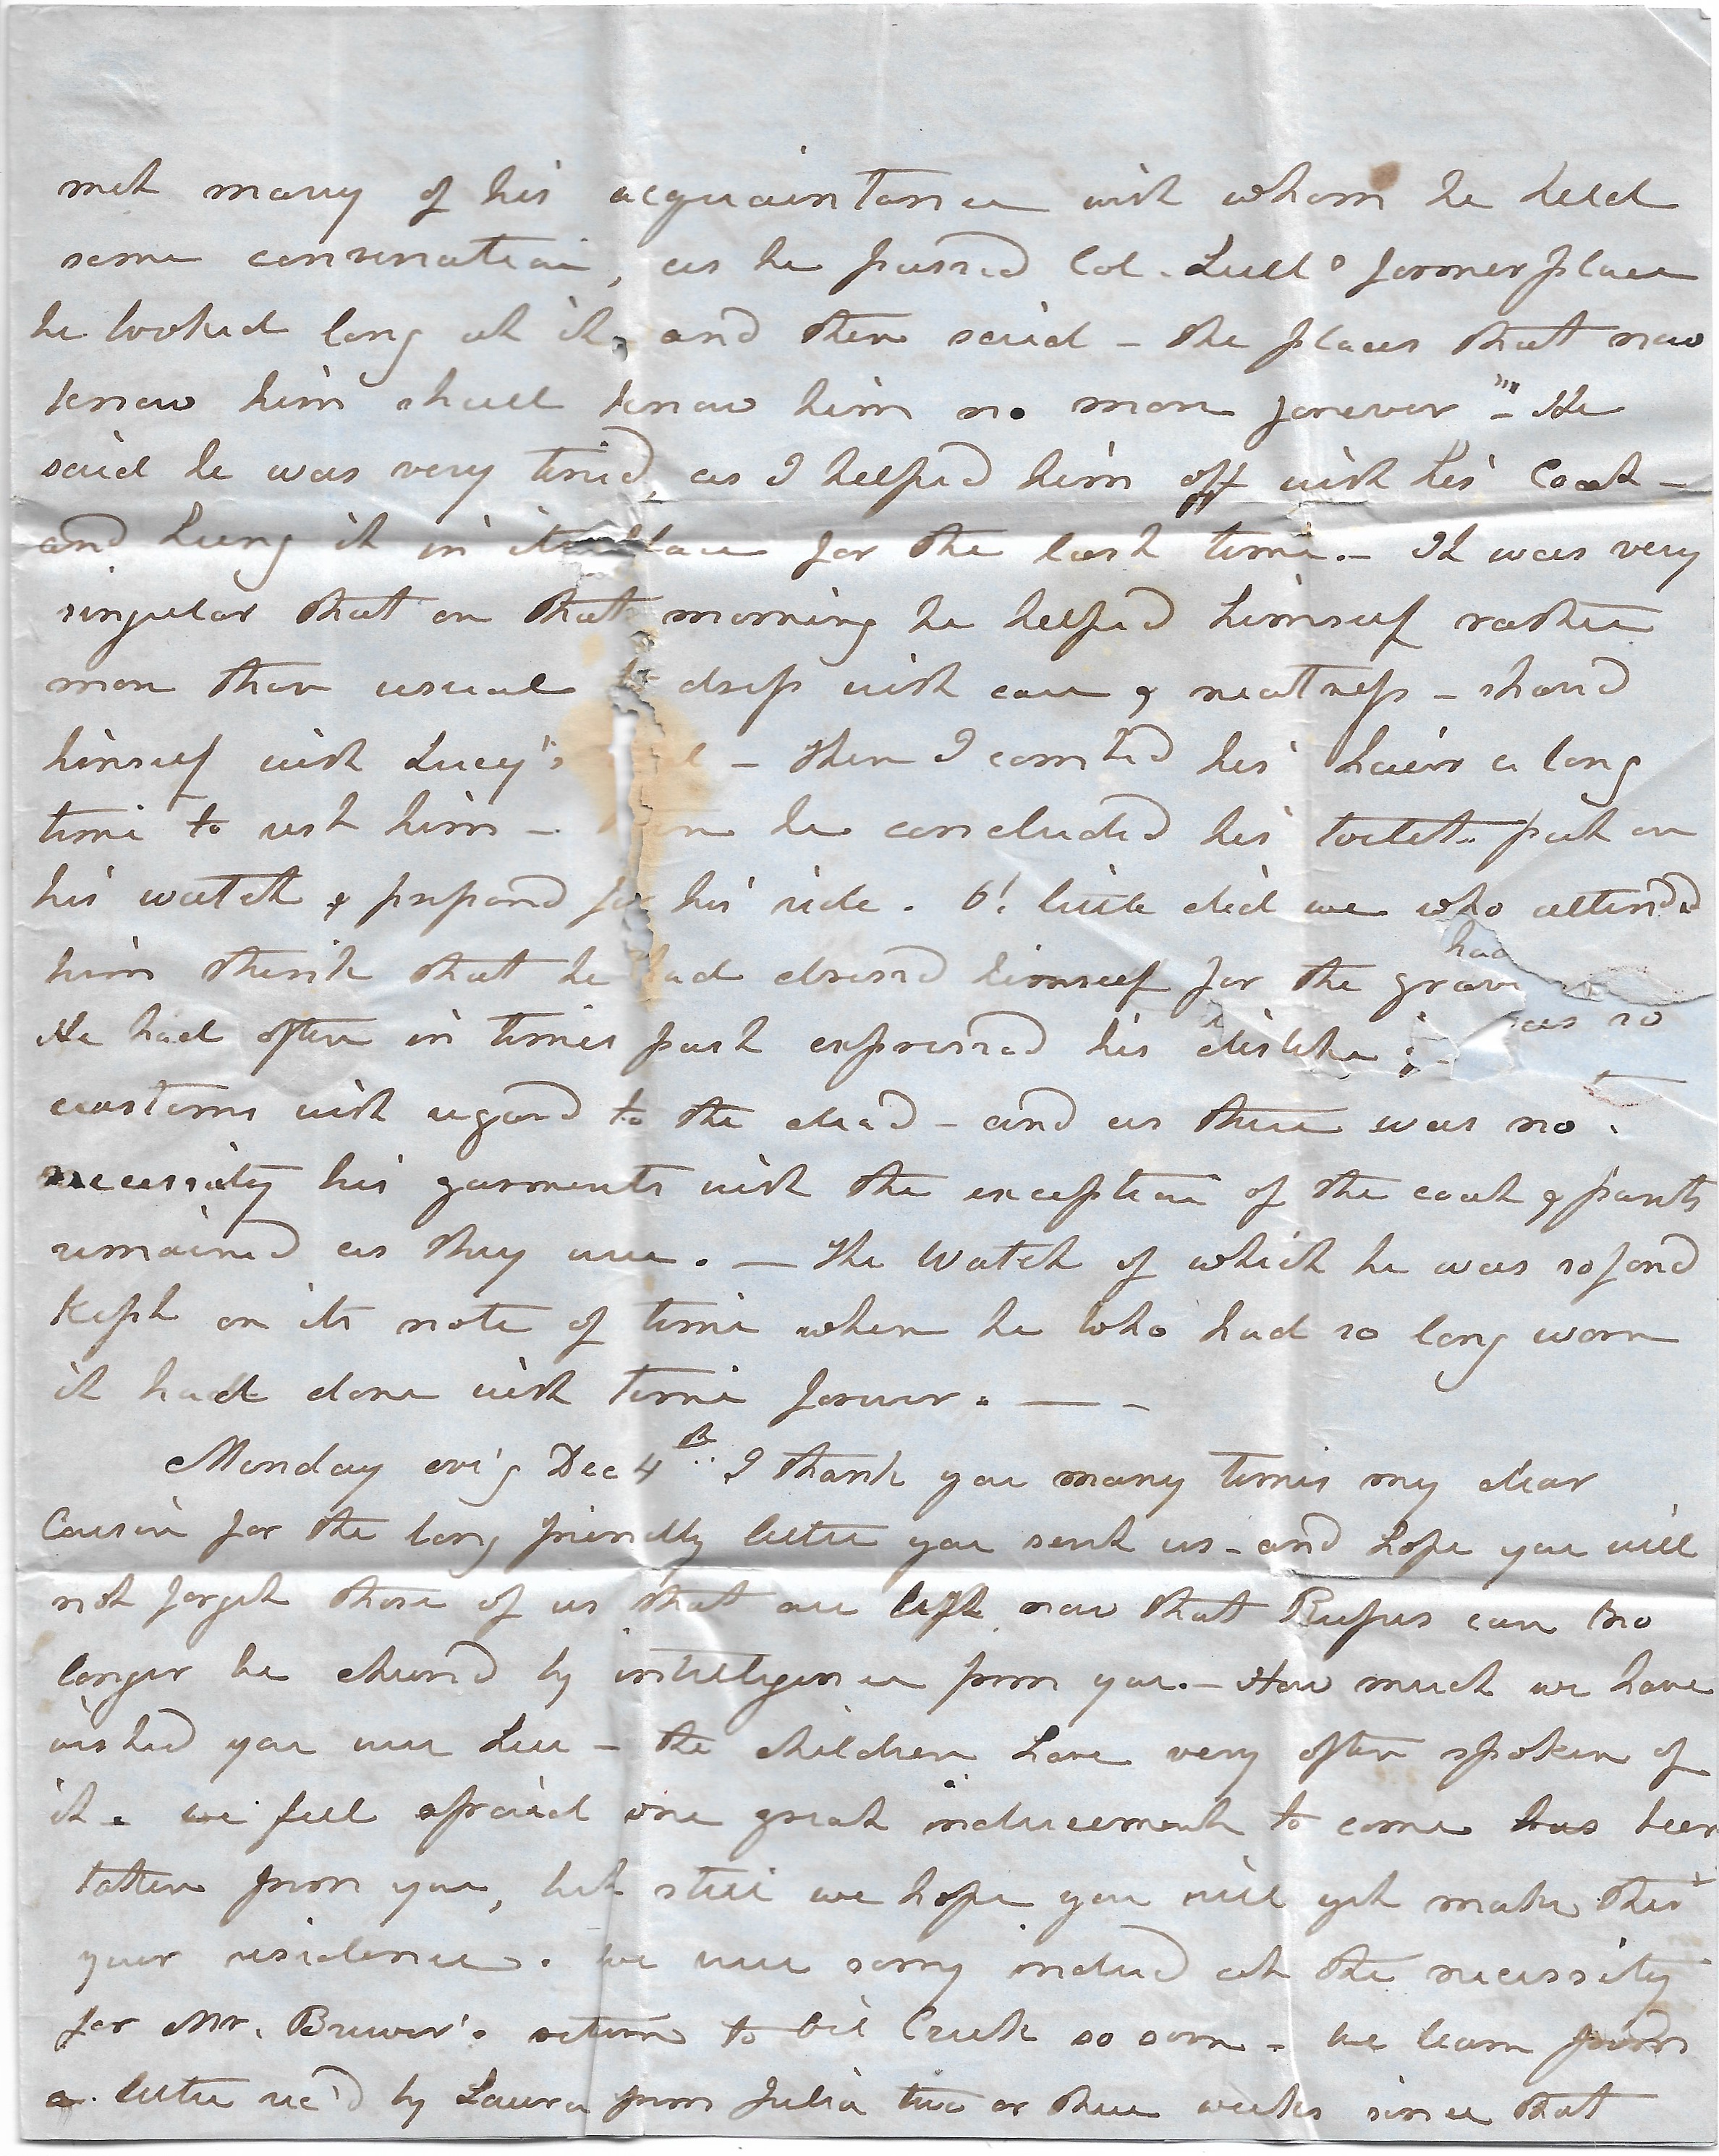 met many of his acquaintance with whom he held
some conversation, as he passed Col. Lull's former place
he looked long at it, and then said - the places that now
know him shall know him no more forever"- He
said he was very tired, as I helped him off with his Coat -
and hung it in its place for the last time. - It was very
singular that on that morning he helped himself rather
more than usual to dress with care & neatness - shaved
himself with Lucy's - then I combed his hair a long
time to rest him - he concluded his toilet. put on
his watch & prepared for his ride. O! little did we who attended
him think that he had dressed himself for the grave
had
He had often in times past expressed his dislike
as so
customs with regard to the dead - and as there was no
necessity his garments with the exception of the coat & pants
remained as they were. - The Watch of which he was so fond
kept on its note of time when he who had so long worn
it had done with time forever. - -
Monday ev'g Dec 4th I thank you many times my dear
Cousin for the long friendly letter you sent us - and hope you will
not forget those of us that are left, now that Rufus can no
longer be cheered by intelligence from you. - How much we have
wished you were here - the children have very often spoken of
it. we feel afraid one great inducement to come has been
taken from you, but still we hope you will yet make this
your residence. we were sorry indeed at the necessity
for Mr. Brewer's return to Oil Creek so soon - we learn from
a letter rec'd by Laura from Julia two or three weeks since that